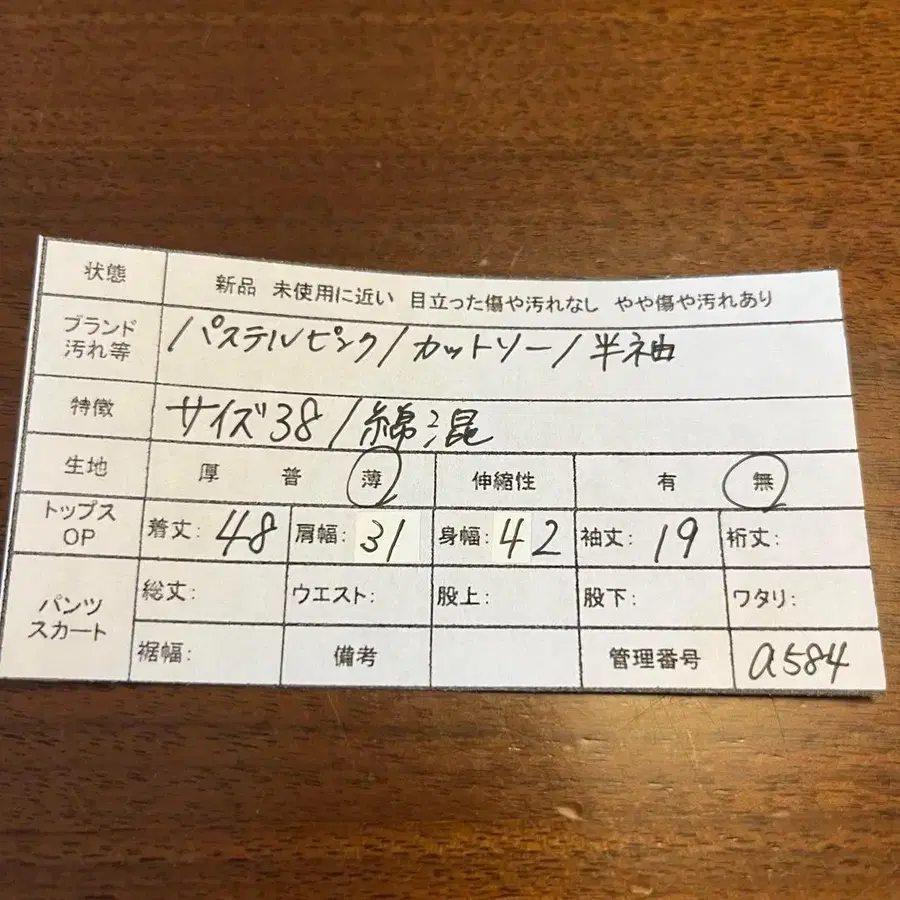 状態 新品 未使用に近い 目立った傷や汚れなし やや傷や汚れあり
ブランド
汚れ等
/パステルピンク/カットソー/半袖
特徴 サイズ38/綿混
生地 厚 普 薄 伸縮性 有 無
トップス
OP
着丈: 48 肩幅: 31 身幅: 42 袖丈: 19 裄丈:
パンツ
スカート
総丈: ウエスト: 股上: 股下: ワタリ:
裾幅: 備考 管理番号 a584